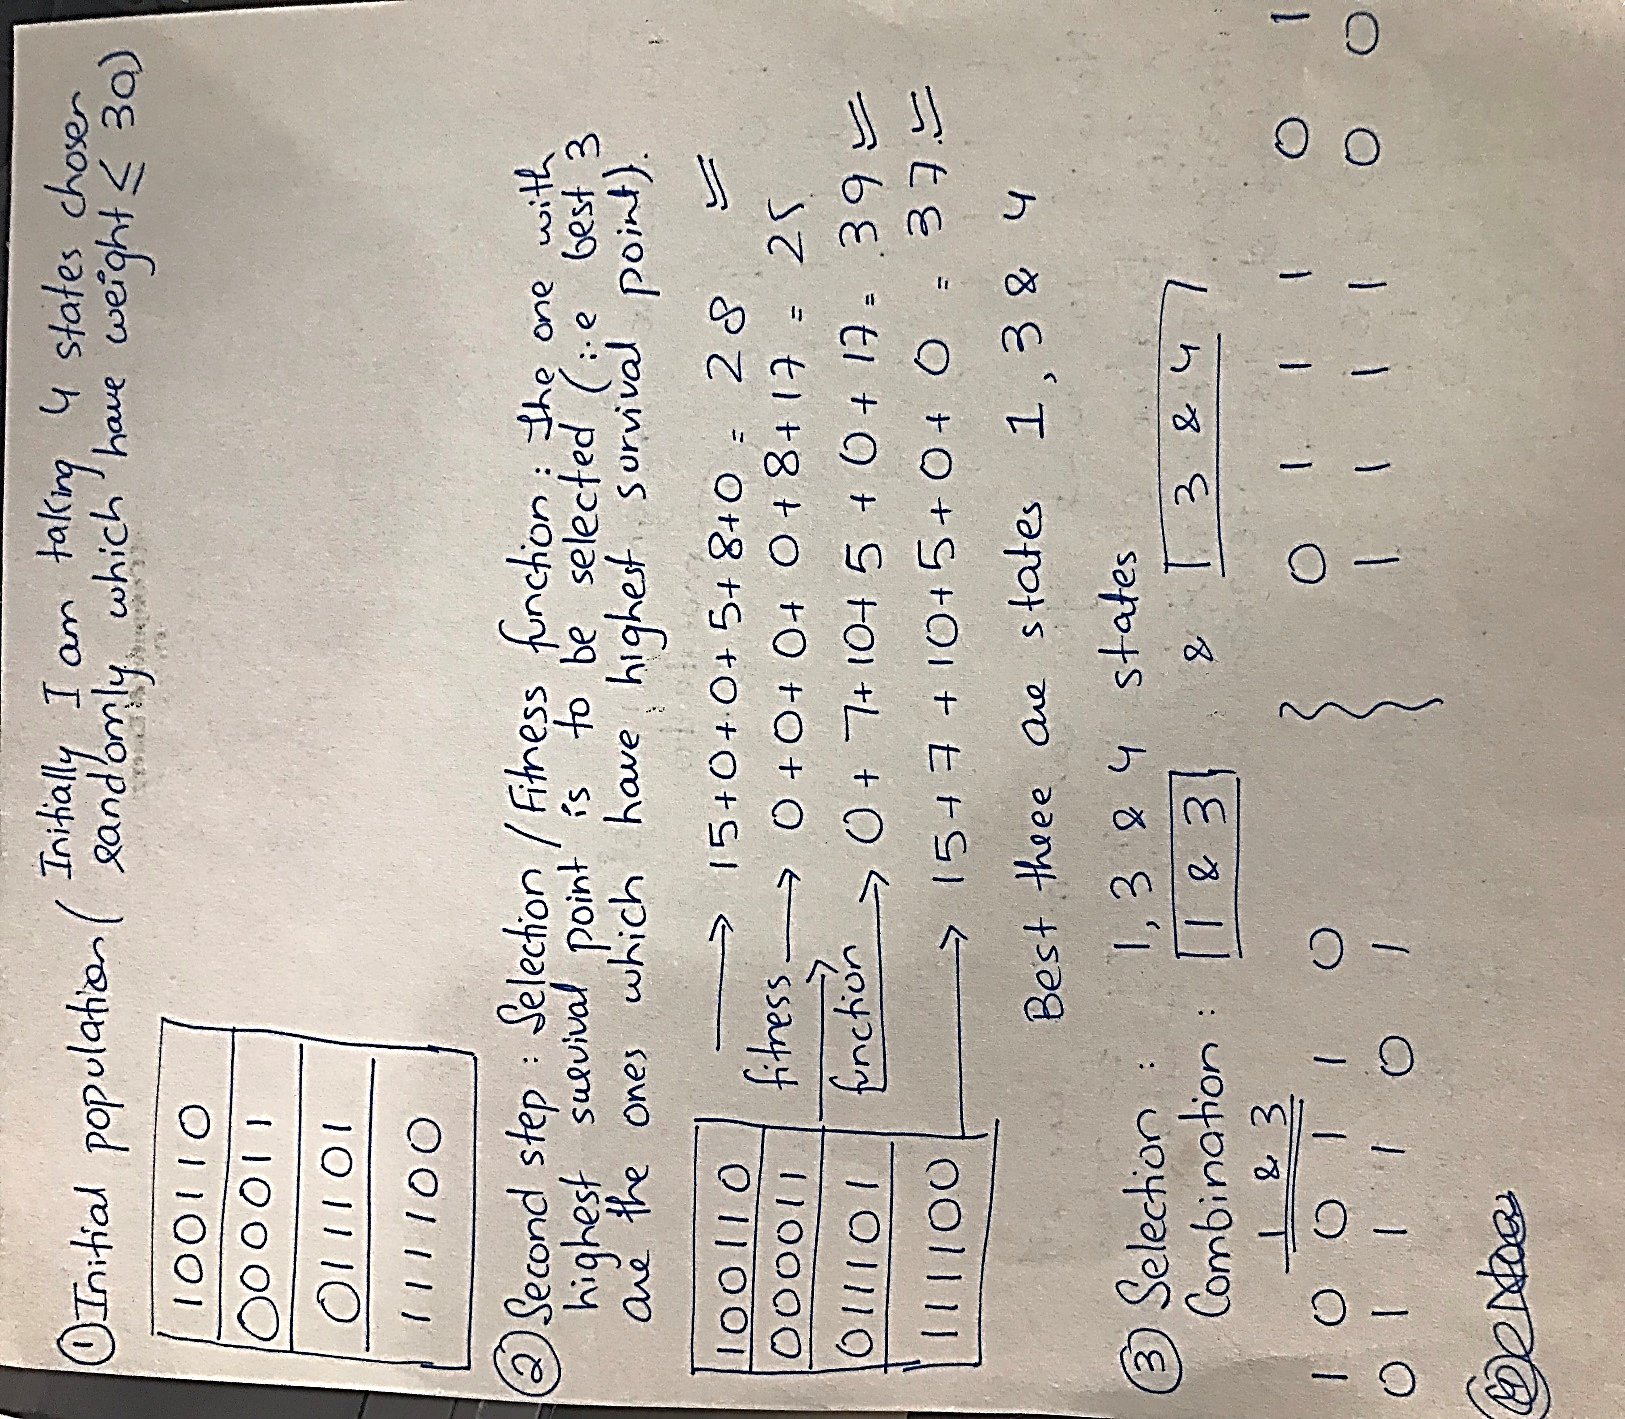 ① Initial population ( Initially I am taking 4 states chosen
randomly which have weight ≤ 30)
100110
000011
011101
111100
② Second step : Selection / Fitness function : the one with
highest survival point is to be selected (i.e best 3
are the ones which have highest survival point).
100110 → 15+0+0+5+8+0 = 28
000011 fitness → 0+0+0+0+8+17 = 25
011101 function → 0+7+10+5+0+17 = 39
111100 → 15+7+10+5+0+0 = 37.
Best three are states 1, 3 & 4
③ Selection : 1, 3 & 4 states
Combination : 1 & 3 & 3 & 4
1 & 3
1 0 0 1 1 0 0 1 1 1 0 1
0 1 1 1 0 1 1 1 1 1 0 0